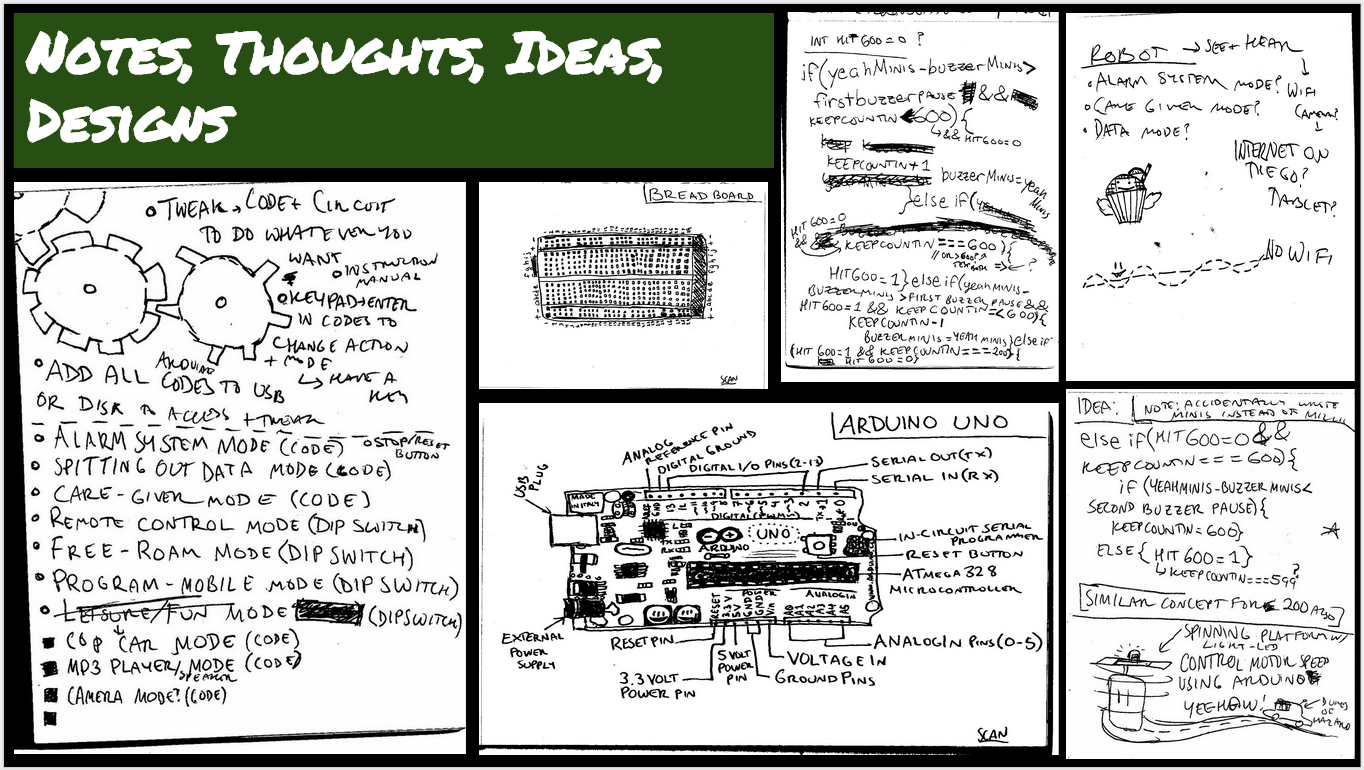 Notes, Thoughts, Ideas,
Designs
TWEAK CODE + CIRCUIT
TO DO WHATEVER YOU
WANT
INSTRUCTION
MANUAL
KEYPAD + ENTER
IN CODES TO
CHANGE ACTION
+ MODE
HAVE A
KEY
ADD ALL ARDUINO CODES TO USB
OR DISK ACCESS + TWEAK
ALARM SYSTEM MODE (CODE)
STOP/RESET
BUTTON
SPITTING OUT DATA MODE (CODE)
CARE-GIVER MODE (CODE)
REMOTE CONTROL MODE (DIP SWITCH)
FREE-ROAM MODE (DIP SWITCH)
PROGRAM-MOBILE MODE (DIP SWITCH)
LEISURE/FUN MODE (DIPSWITCH)
COP CAR MODE (CODE)
MP3 PLAYER/SPEAKER MODE (CODE)
CAMERA MODE? (CODE)
BREAD BOARD
SCAN
ARDUINO UNO
USB
PLUG
ANALOG
REFERENCE PIN
DIGITAL GROUND
DIGITAL I/O PINS (2-13)
SERIAL OUT (TX)
SERIAL IN (RX)
MADE
IN ITALY
DIGITAL (PWM~)
UNO
ARDUINO
IN-CIRCUIT SERIAL
PROGRAMMER
RESET BUTTON
ATMEGA 328
MICROCONTROLLER
POWER
ANALOG IN
RESET
3.3V
5V
GND
GND
Vin
A0
A1
A2
A3
A4
A5
EXTERNAL
POWER
SUPPLY
RESET PIN
3.3 VOLT
POWER PIN
5 VOLT
POWER
PIN
GROUND PINS
VOLTAGE IN
ANALOG IN PINS (0-5)
SCAN
INT HIT600=0 ?
if(yeahMINIS-buzzerMINIS>
firstbuzzerPAUSE &&
KEEPCOUNTIN <600){
&& HIT600=0
KEEPCOUNTIN+1
buzzerMINIS=yeah
Minis
}else if(
HIT600=0
&& KEEPCOUNTIN===600){
HIT600=1}else if(yeahMINIS-
BUZZERMINIS>FIRST BUZZER PAUSE &&
HIT600=1 && KEEPCOUNTIN=<600){
KEEPCOUNTIN-1
BUZZERMINIS=YEAH MINIS}else if
(HIT 600=1 && KEEPCOUNTIN===200){
HIT 600=0}
ROBOT → SEE + HEAR
ALARM SYSTEM MODE?
CARE GIVER MODE?
DATA MODE?
WIFI
CAMERA?
INTERNET ON
THE GO?
TABLET?
NO WIFI
IDEA:
NOTE: ACCIDENTALLY WRITE
MINIS INSTEAD OF
else if(HIT600=0 &&
KEEPCOUNTIN===600){
if (YEAHMINIS-BUZZER MINIS<
SECOND BUZZER PAUSE){
KEEPCOUNTIN=600}
ELSE{HIT 600=1}
KEEPCOUNTIN===599?
SIMILAR CONCEPT FOR 200 ALSO
SPINNING PLATFORM W/
LIGHT-LED
CONTROL MOTOR SPEED
USING ARDUINO
YEE-HAW!
DUKES
OF
HAZARD